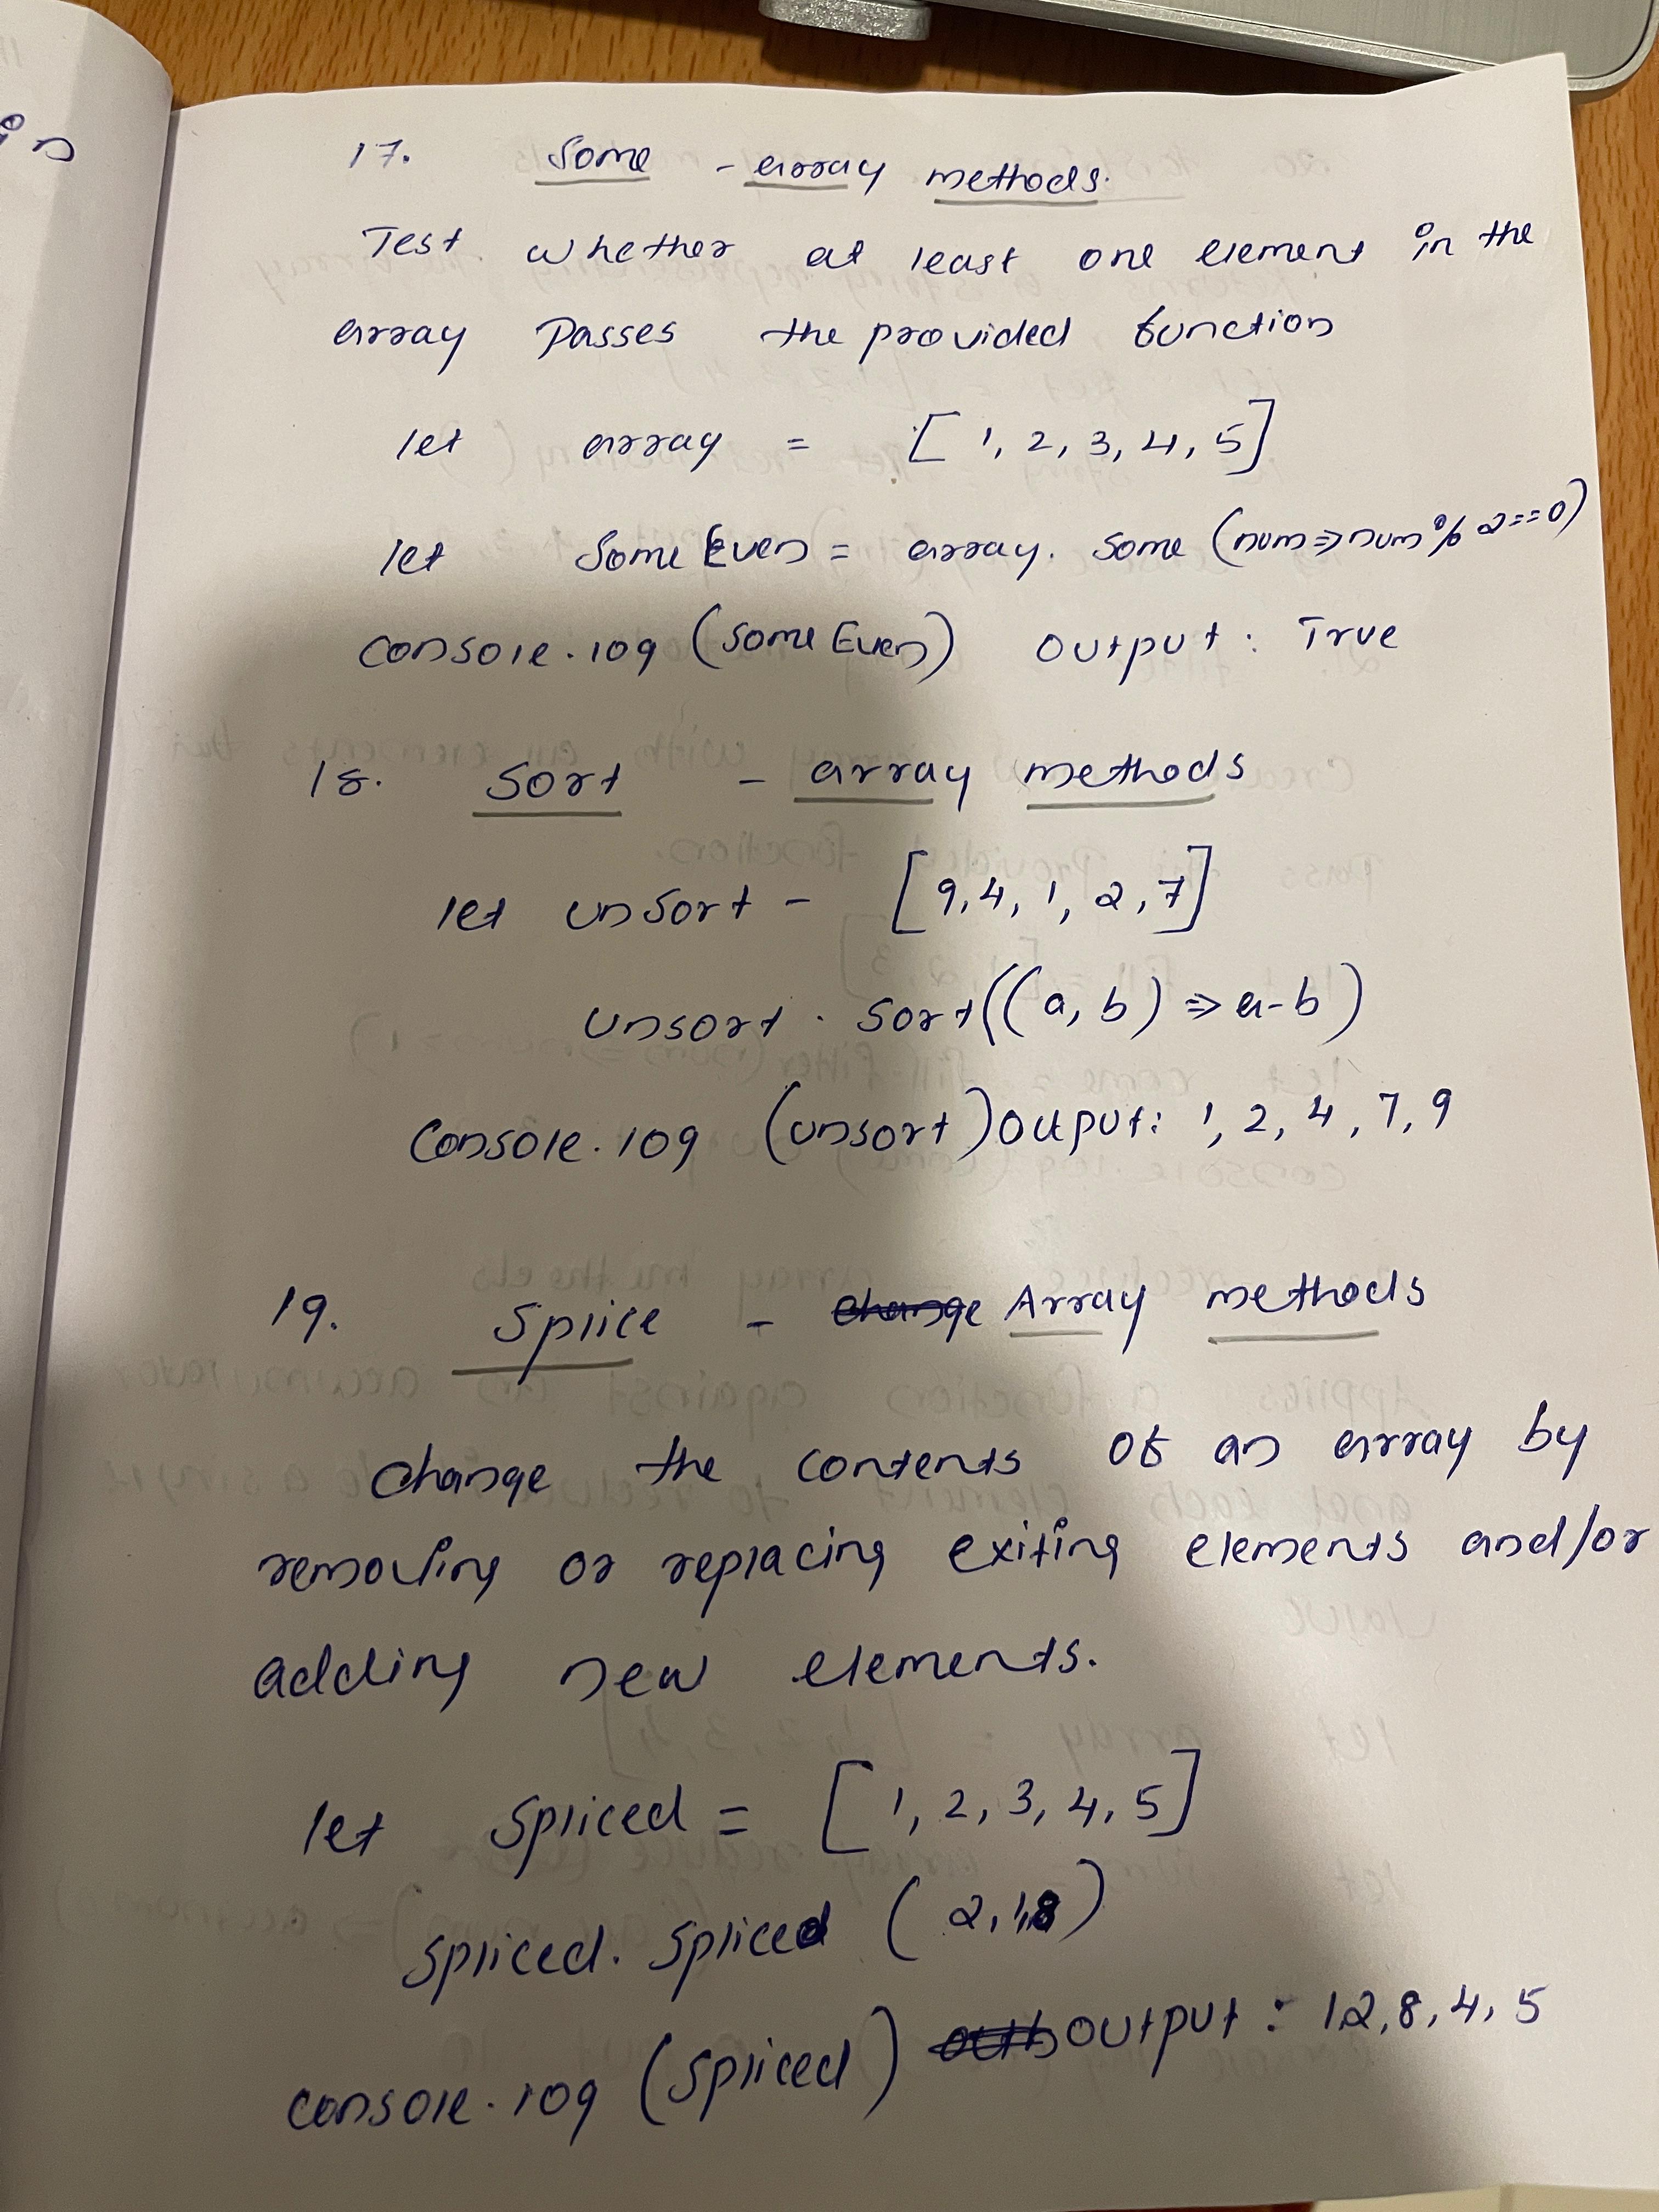 17. Some - array methods.
Test whether at least one element in the
array Passes the provided function
let array = [1, 2, 3, 4, 5]
let Some Even = array. Some (num=>num%2==0)
console.log (Some Even) Output: True
18. Sort - array methods
let unsort - [9,4, 1, 2,7]
unsort. Sort((a, b) => a-b)
Console.log (unsort) Output: 1, 2, 4, 7, 9
19. Splice - change Array methods
change the contents of an array by
removing or replacing exiting elements and/or
adding new elements.
let Spliced = [1, 2, 3, 4, 5]
Spliced. Spliced (2,1,8)
console.log (Spliced) Output: 12,8,4,5